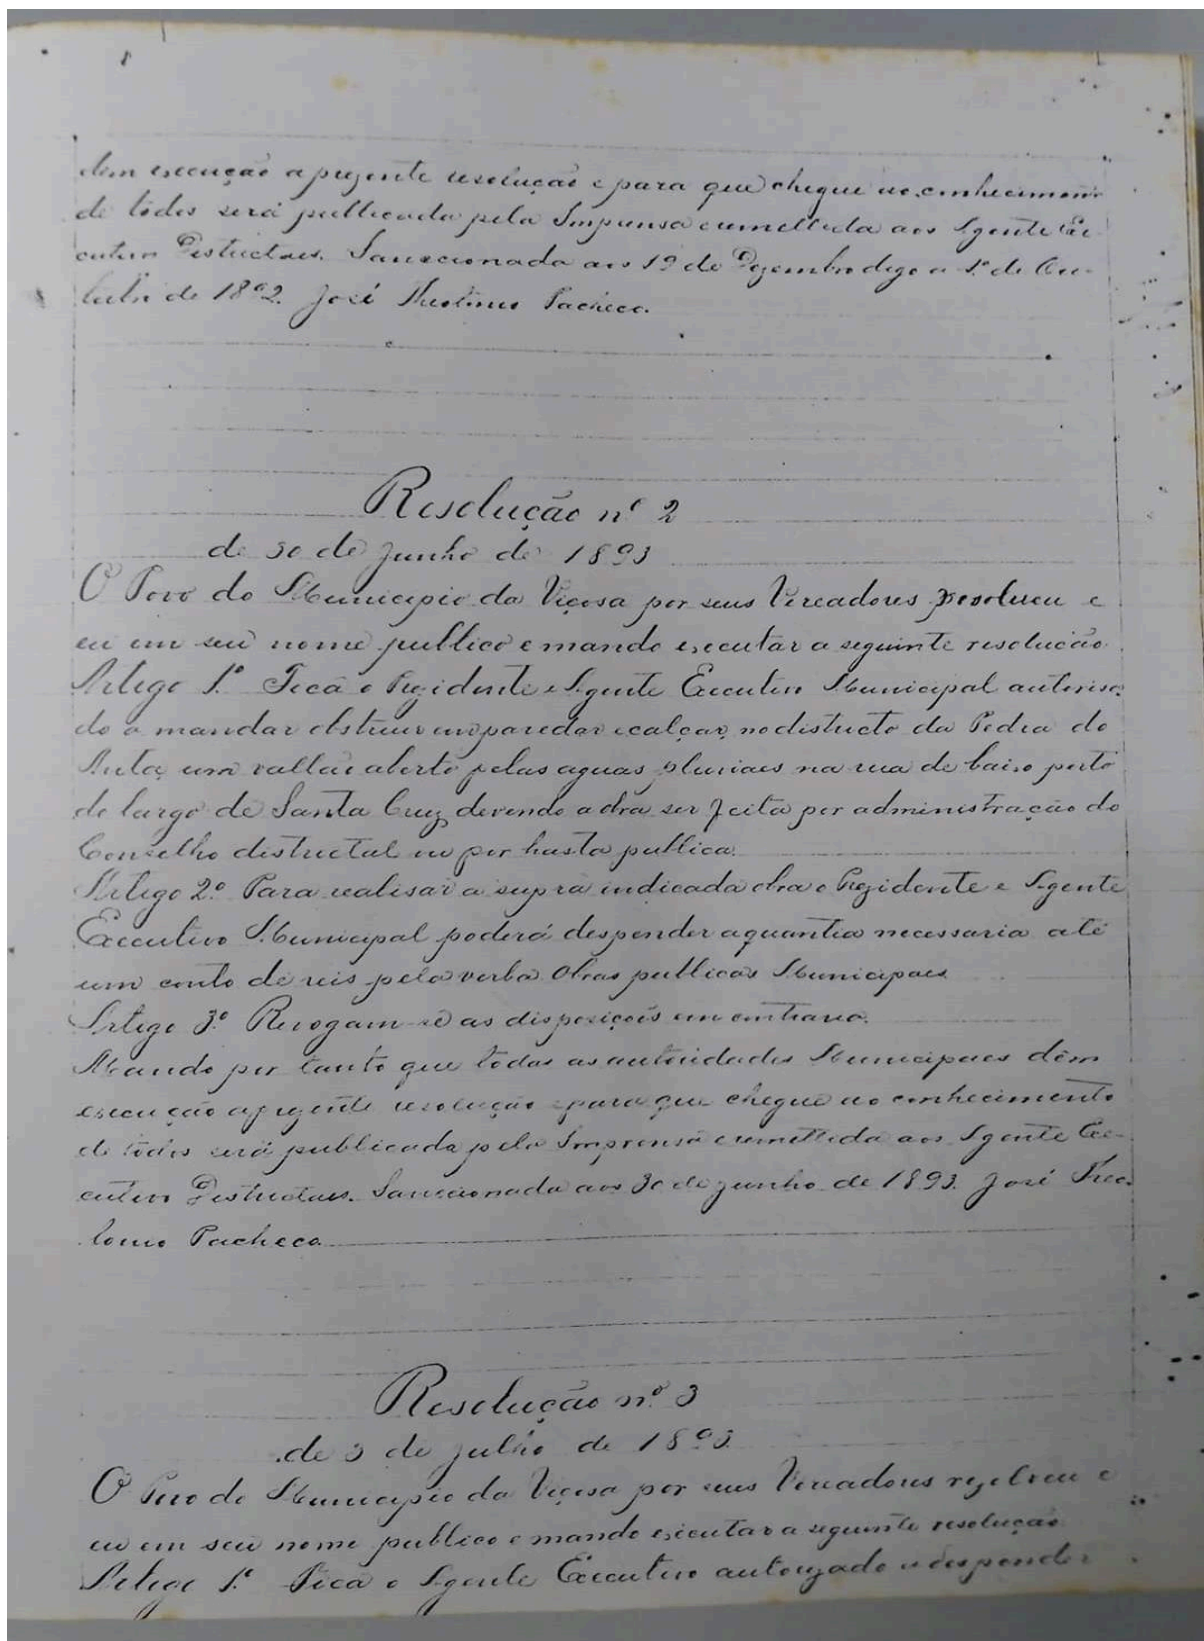 dem execução a prezente resolução e para que chegue ao conhecimento
de todos será publicada pela Imprensa e remettida aos Agente Exe-
cutivo Districtaes. Sanccionada aos 19 de Dezembro digo a 1º de Ou-
tubro de 1892. José Theotonio Pacheco.
Resolução nº 2
de 30 de Junho de 1893
O Povo do Municipio da Viçosa por seus Vereadores resolveu e
eu em seu nome publico e mando executar a seguinte resolução.
Artigo 1º Fica o Prezidente e Agente Executivo Municipal autorisa-
do a mandar obstruir emparedar e calçar, no districto da Pedra do
Anta, um vallão aberto pelas aguas pluviaes na rua de baixo perto
do largo de Santa Cruz, devendo a obra ser feita por administração do
Conselho districtal ou por hasta publica.
Artigo 2º Para realisar a supra indicada obra o Prezidente e Agente
Executivo Municipal poderá despender a quantia necessaria até
um conto de reis pela verba Obras publicas Municipaes
Artigo 3º Revogam-se as disposições em contrario.
Mando por tanto que todas as autoridades Municipaes dêm
execução a prezente resolução e para que chegue ao conhecimento
de todos será publicada pela Imprensa e remettida aos Agente Exe-
cutivo Districtaes. Sanccionada aos 30 de junho de 1893. José Theo-
tonio Pacheco
Resolução nº 3
de 3 de Julho de 1893.
O Povo do Municipio da Viçosa por seus Vereadores rezolveu e
eu em seu nome publico e mando executar a seguinte resolução
Artigo 1º Fica o Agente Executivo autorizado a despender